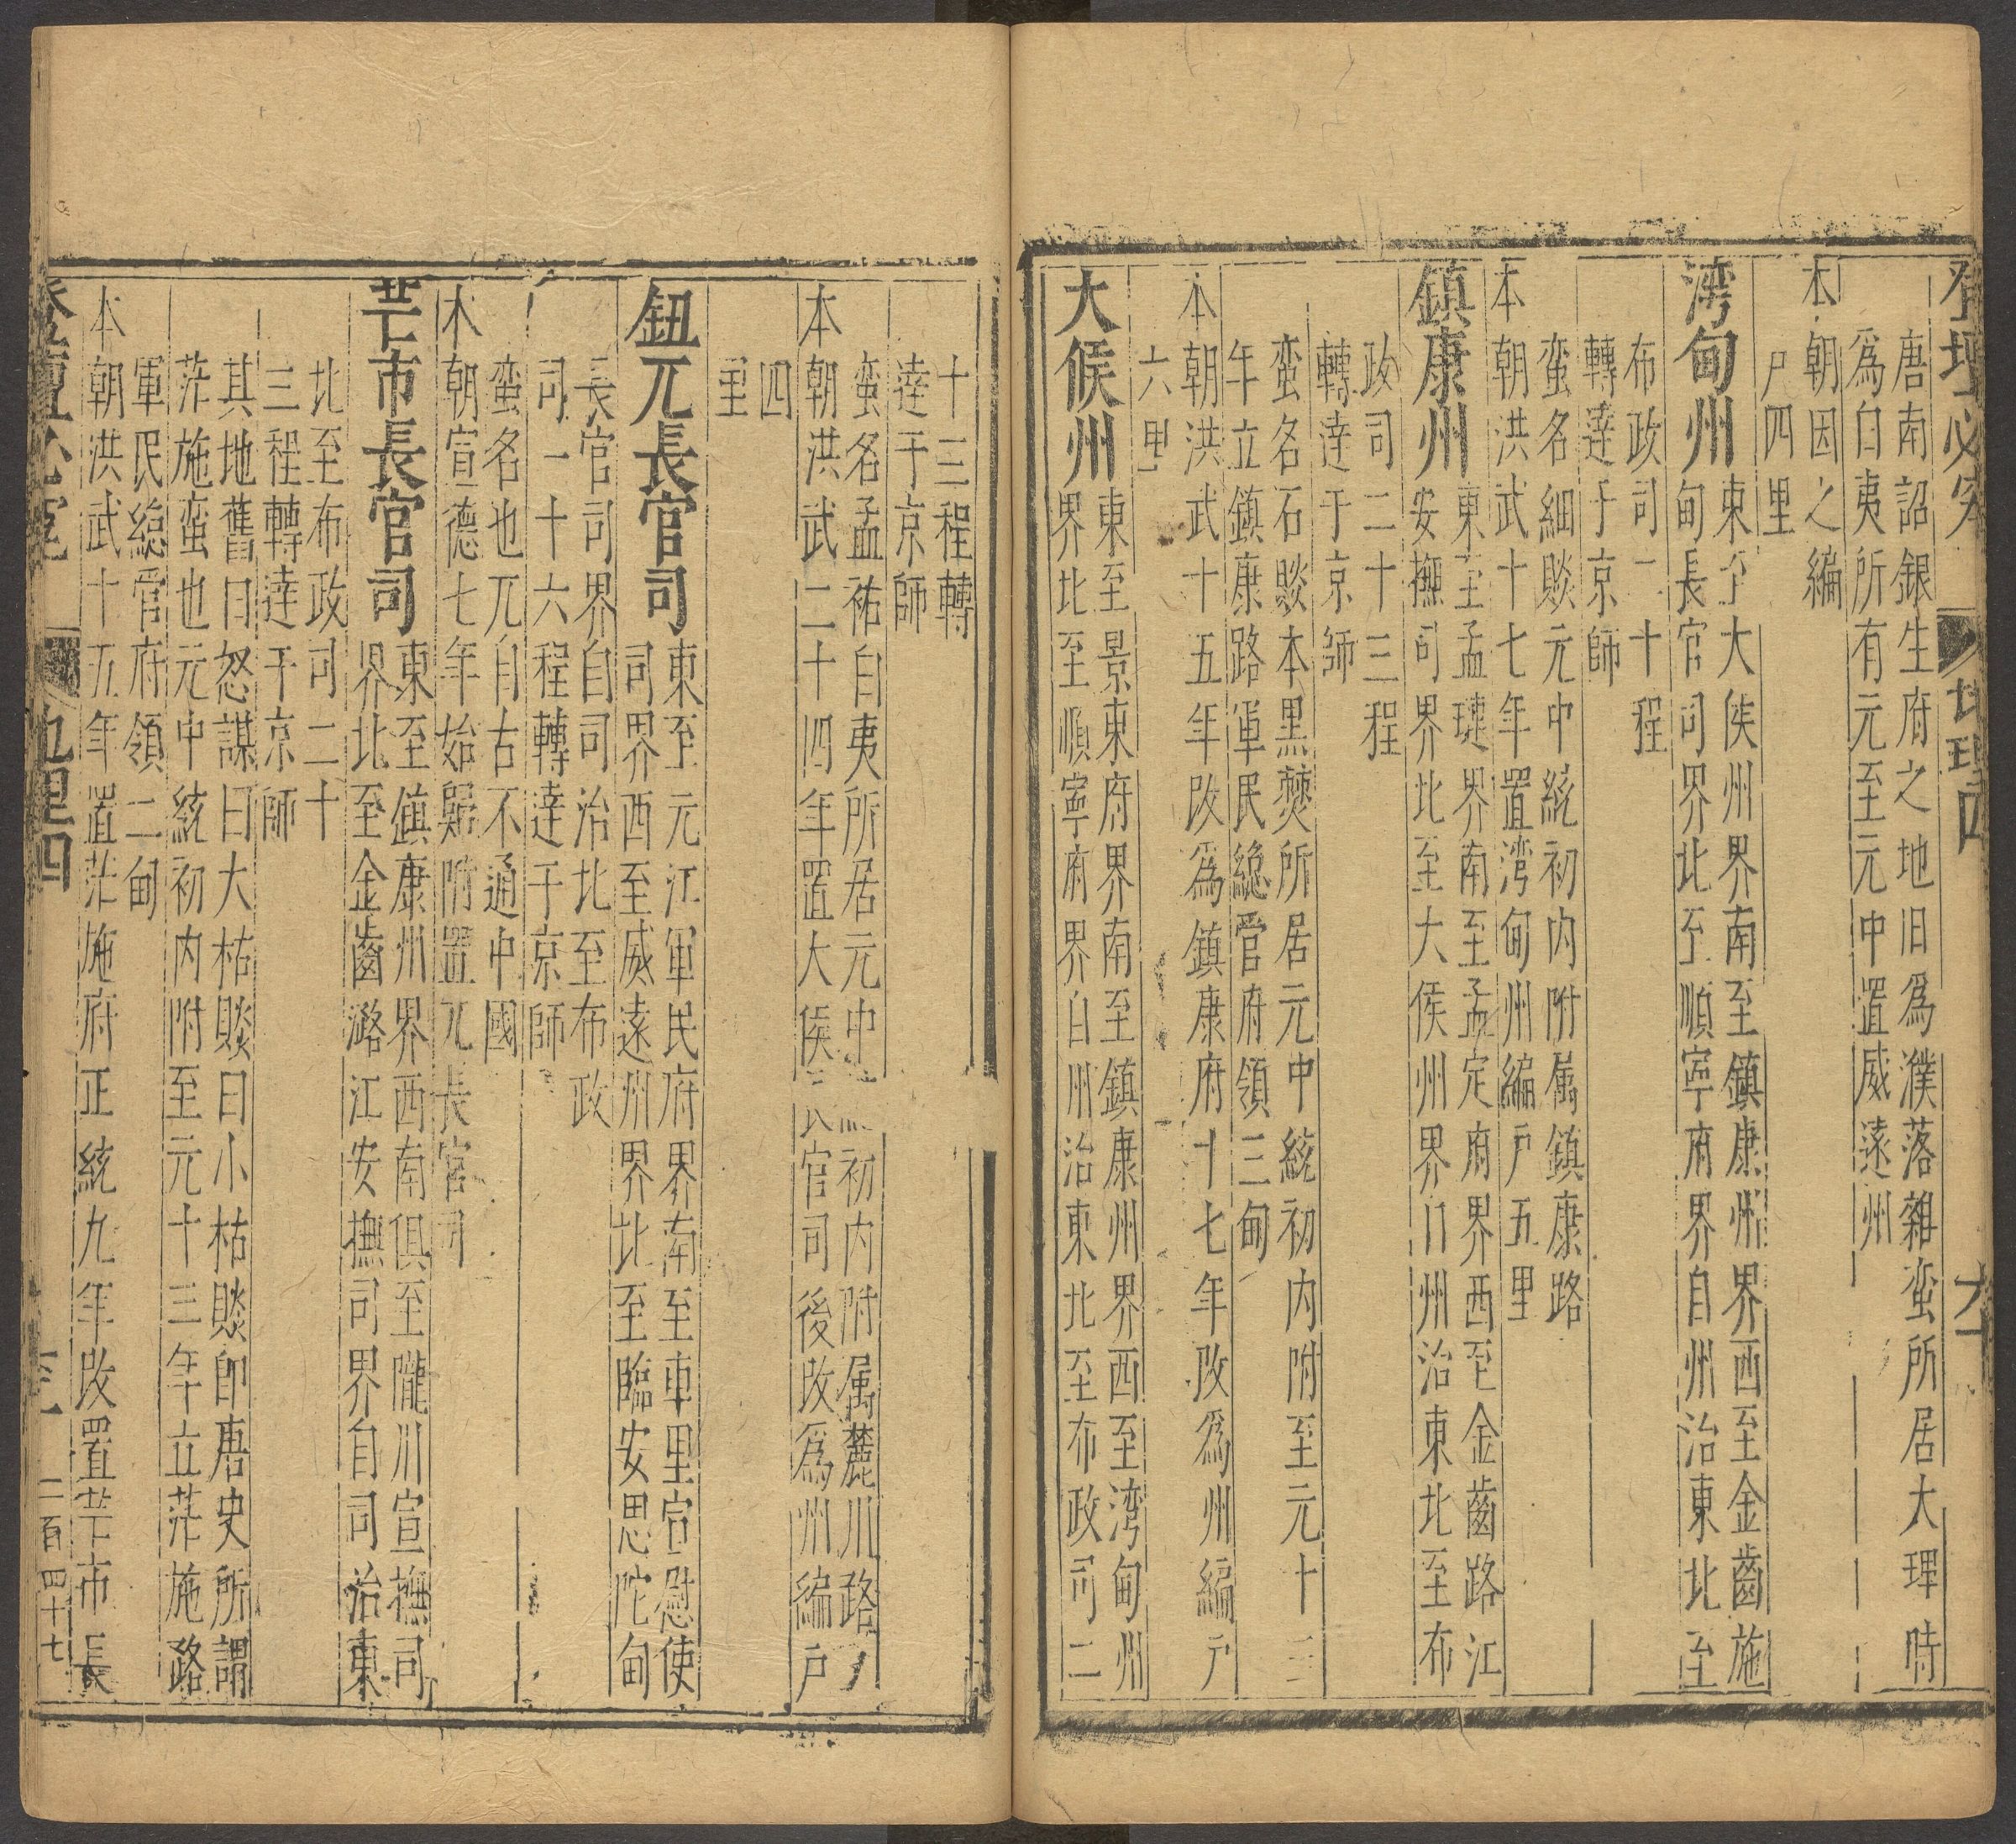 登壇必究 地理四 六十
唐南詔銀生府之地旧為濮落雜蛮所居大理時
為白夷所有元至元中置威遠州
本朝因之編
戶四里
湾甸州
東至大侯州界南至鎮康州界西至金齒施
甸長官司界北至順寧府界自州治東北至
布政司二十程
轉達于京師
蛮名細賧元中統初内附属鎮康路
本朝洪武十七年置湾甸州編戶五里
鎮康州
東至孟璉界南至孟定府界西至金齒路江
安撫司界北至大侯州界自州治東北至布
政司二十三程
轉達于京師
蛮名石賧本黑僰所居元中統初内附至元十三
年立鎮康路軍民總管府領三甸
本朝洪武十五年改為鎮康府十七年改為州編戶
六里
大侯州
東至景東府界南至鎮康州界西至湾甸州
界北至順寧府界自州治東北至布政司二
十三程轉
達于京師
蛮名孟祐白夷所居元中統初内附属麓川路
本朝洪武二十四年置大侯長官司後改為州編戶
四
里
鈕兀長官司
東至元江軍民府界南至車里宣慰使
司界西至威遠州界北至臨安思陀甸
長官司界自司治北至布政
司一十六程轉達于京師
蛮名也兀自古不通中國
本朝宣德七年始歸附置兀長官司
芒市長官司
東至鎮康州界西南俱至隴川宣撫司
界北至金齒潞江安撫司界自司治東
北至布政司二十
三程轉達于京師
其地舊曰怒謀曰大枯賧曰小枯賧即唐史所謂
茫施蛮也元中統初内附至元十三年立茫施路
軍民總管府領二甸
本朝洪武十五年置茫施府正統九年改置芒市長
登壇必究 地理四 二百四十七